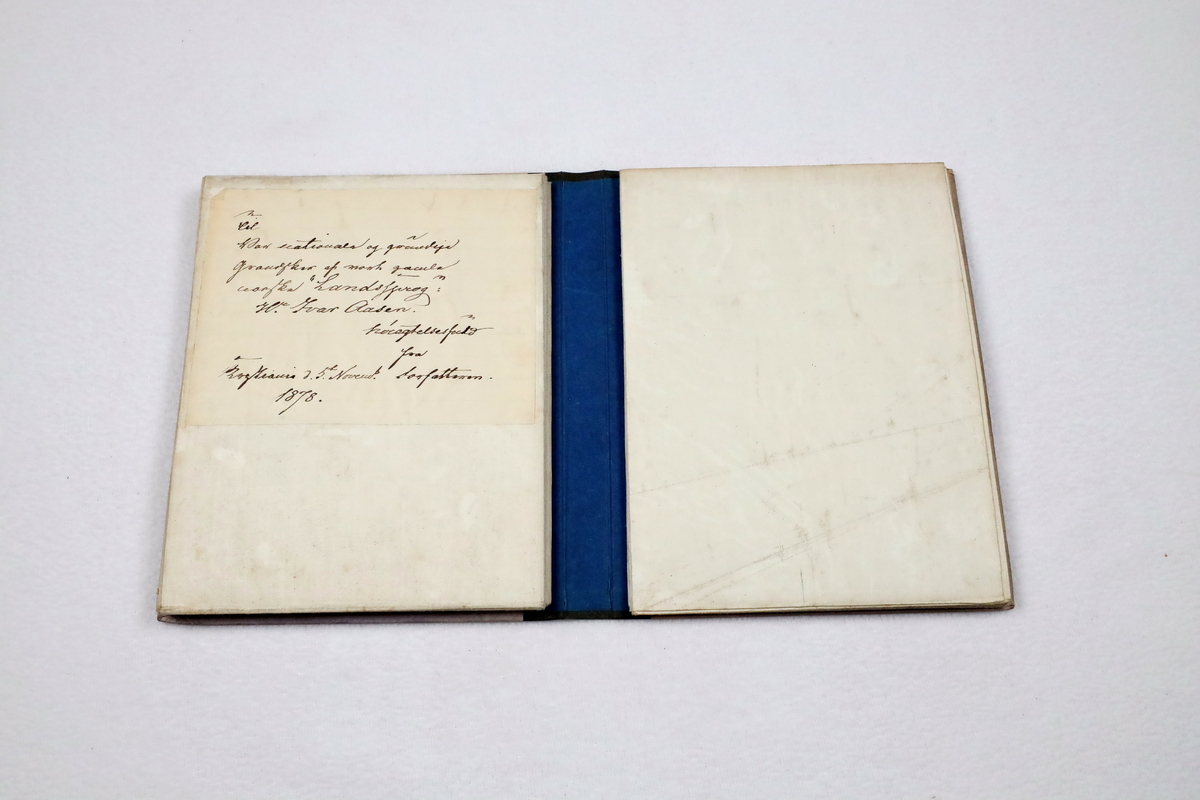 Til
Vor nationale og grundige
Grandsker af vort gamle
norske "Landssprog":
Hr. Ivar Aasen.
høiagtelsesfuld
fra
Kristiania d. 5t Novemb. Forfatteren.
1878.